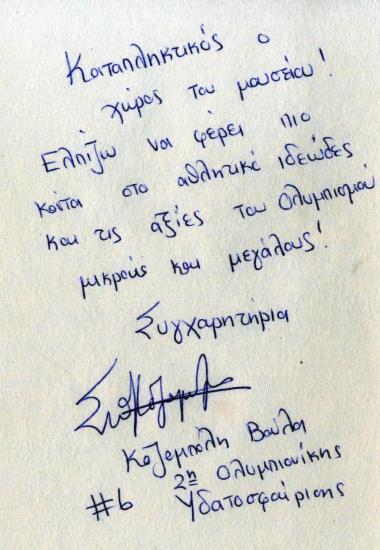 Καταπληκτικός ο
χώρος του μουσείου!
Ελπίζω να φέρει πιο
κοντά στο αθλητικό ιδεώδες
και τις αξίες του Ολυμπισμού
μικρούς και μεγάλους!
Συγχαρητήρια
Κοζομπόλη Βούλα
2η Ολυμπιονίκης
#6 Υδατοσφαίρισης